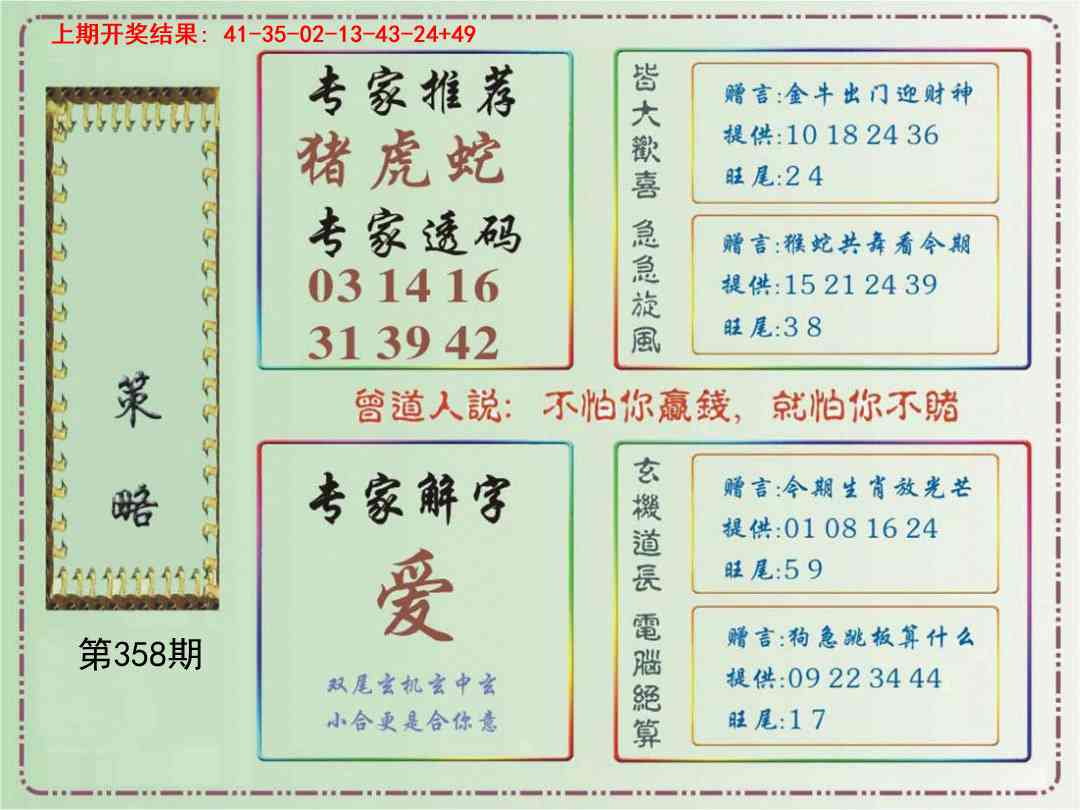 上期开奖结果: 41-35-02-13-43-24+49
策略
第358期
专家推荐
猪虎蛇
专家透码
03 14 16
31 39 42
皆大歡喜
赠言:金牛出门迎财神
提供:10 18 24 36
旺尾:2 4
急急旋風
赠言:猴蛇共舞看今期
提供:15 21 24 39
旺尾:3 8
曾道人説: 不怕你贏錢, 就怕你不賭
专家解字
爱
双尾玄机玄中玄
小合更是合你意
玄機道長
赠言:今期生肖放光芒
提供:01 08 16 24
旺尾:5 9
電腦絕算
赠言:狗急跳板算什么
提供:09 22 34 44
旺尾:1 7